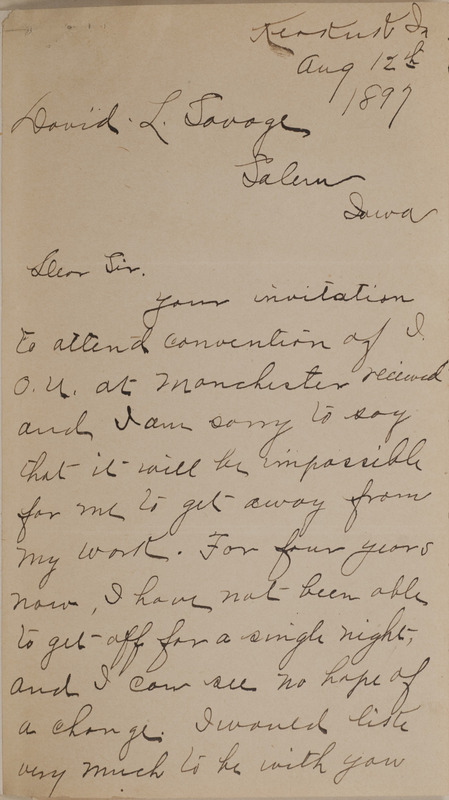 Keokuk Ia
Aug 12th
1897
David. L. Savage,
Salem
Iowa
Dear Sir.
Your invitation
to attend convention of I.
O.U. at Manchester received
and I am sorry to say
that it will be impossible
for me to get away from
my work. For four years
now, I have not been able
to get off for a single night,
and I can see no hope of
a change. I would like
very much to be with you